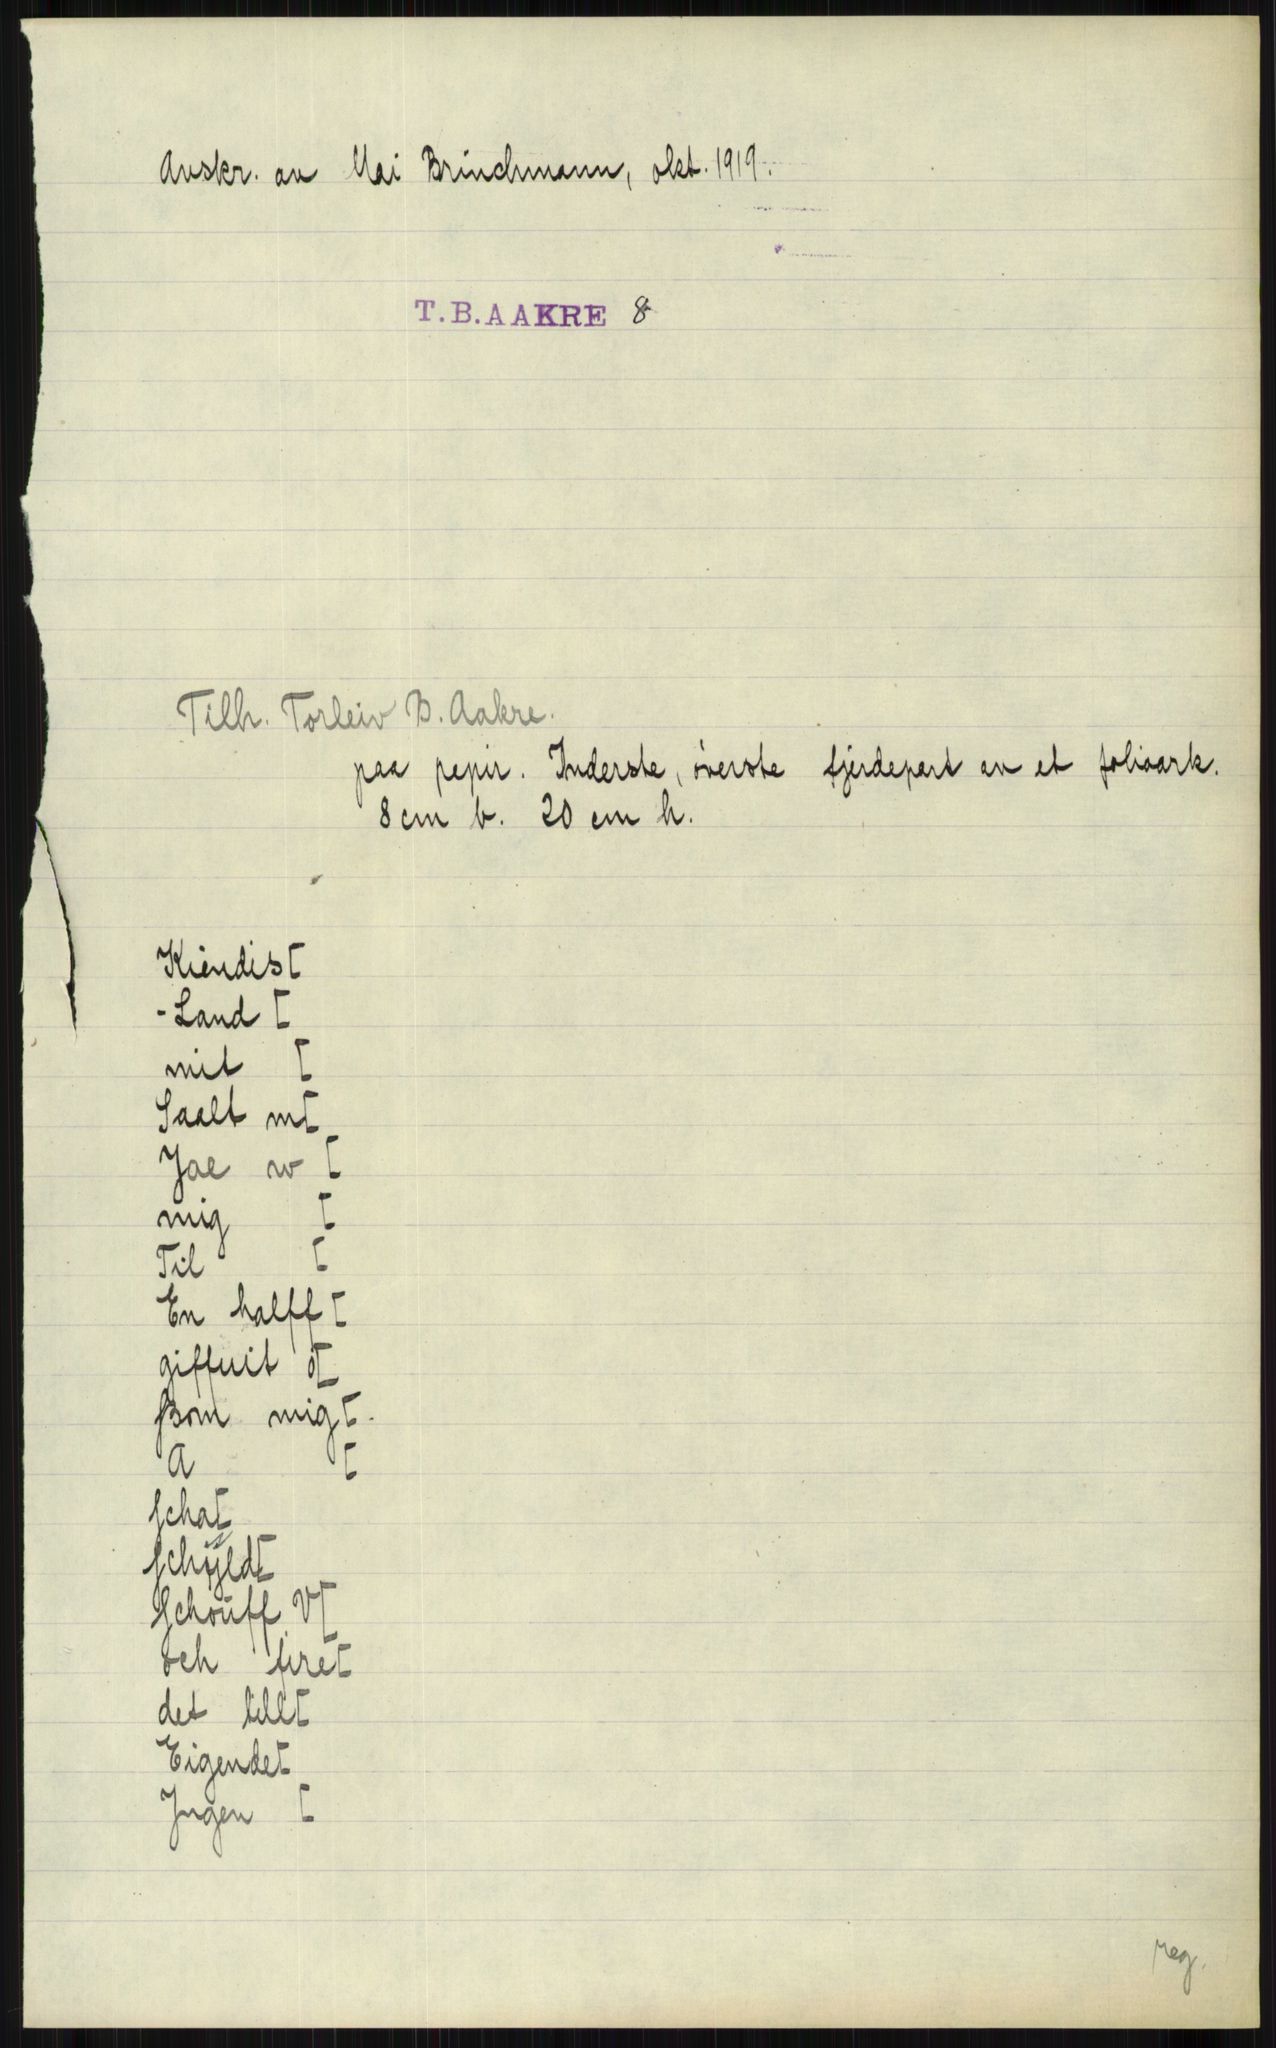 Avskr. av Mai Brinchmann, okt. 1919.
T.B.AAKRE 8
Tilh. Torleiv B. Aakre.
paa papir. Inderste, överste fjerdepart av et folioark.
8 cm b. 20 cm h.
Kiendis[
-Land [
mit [
Saalt m[
Jae w [
mig [
Til [
En halff [
giffuit o[
ßom mig[
A [
scha[
schÿld[
Schouff V[
och fire[
det till[
Eigende[
Jngen [
reg.